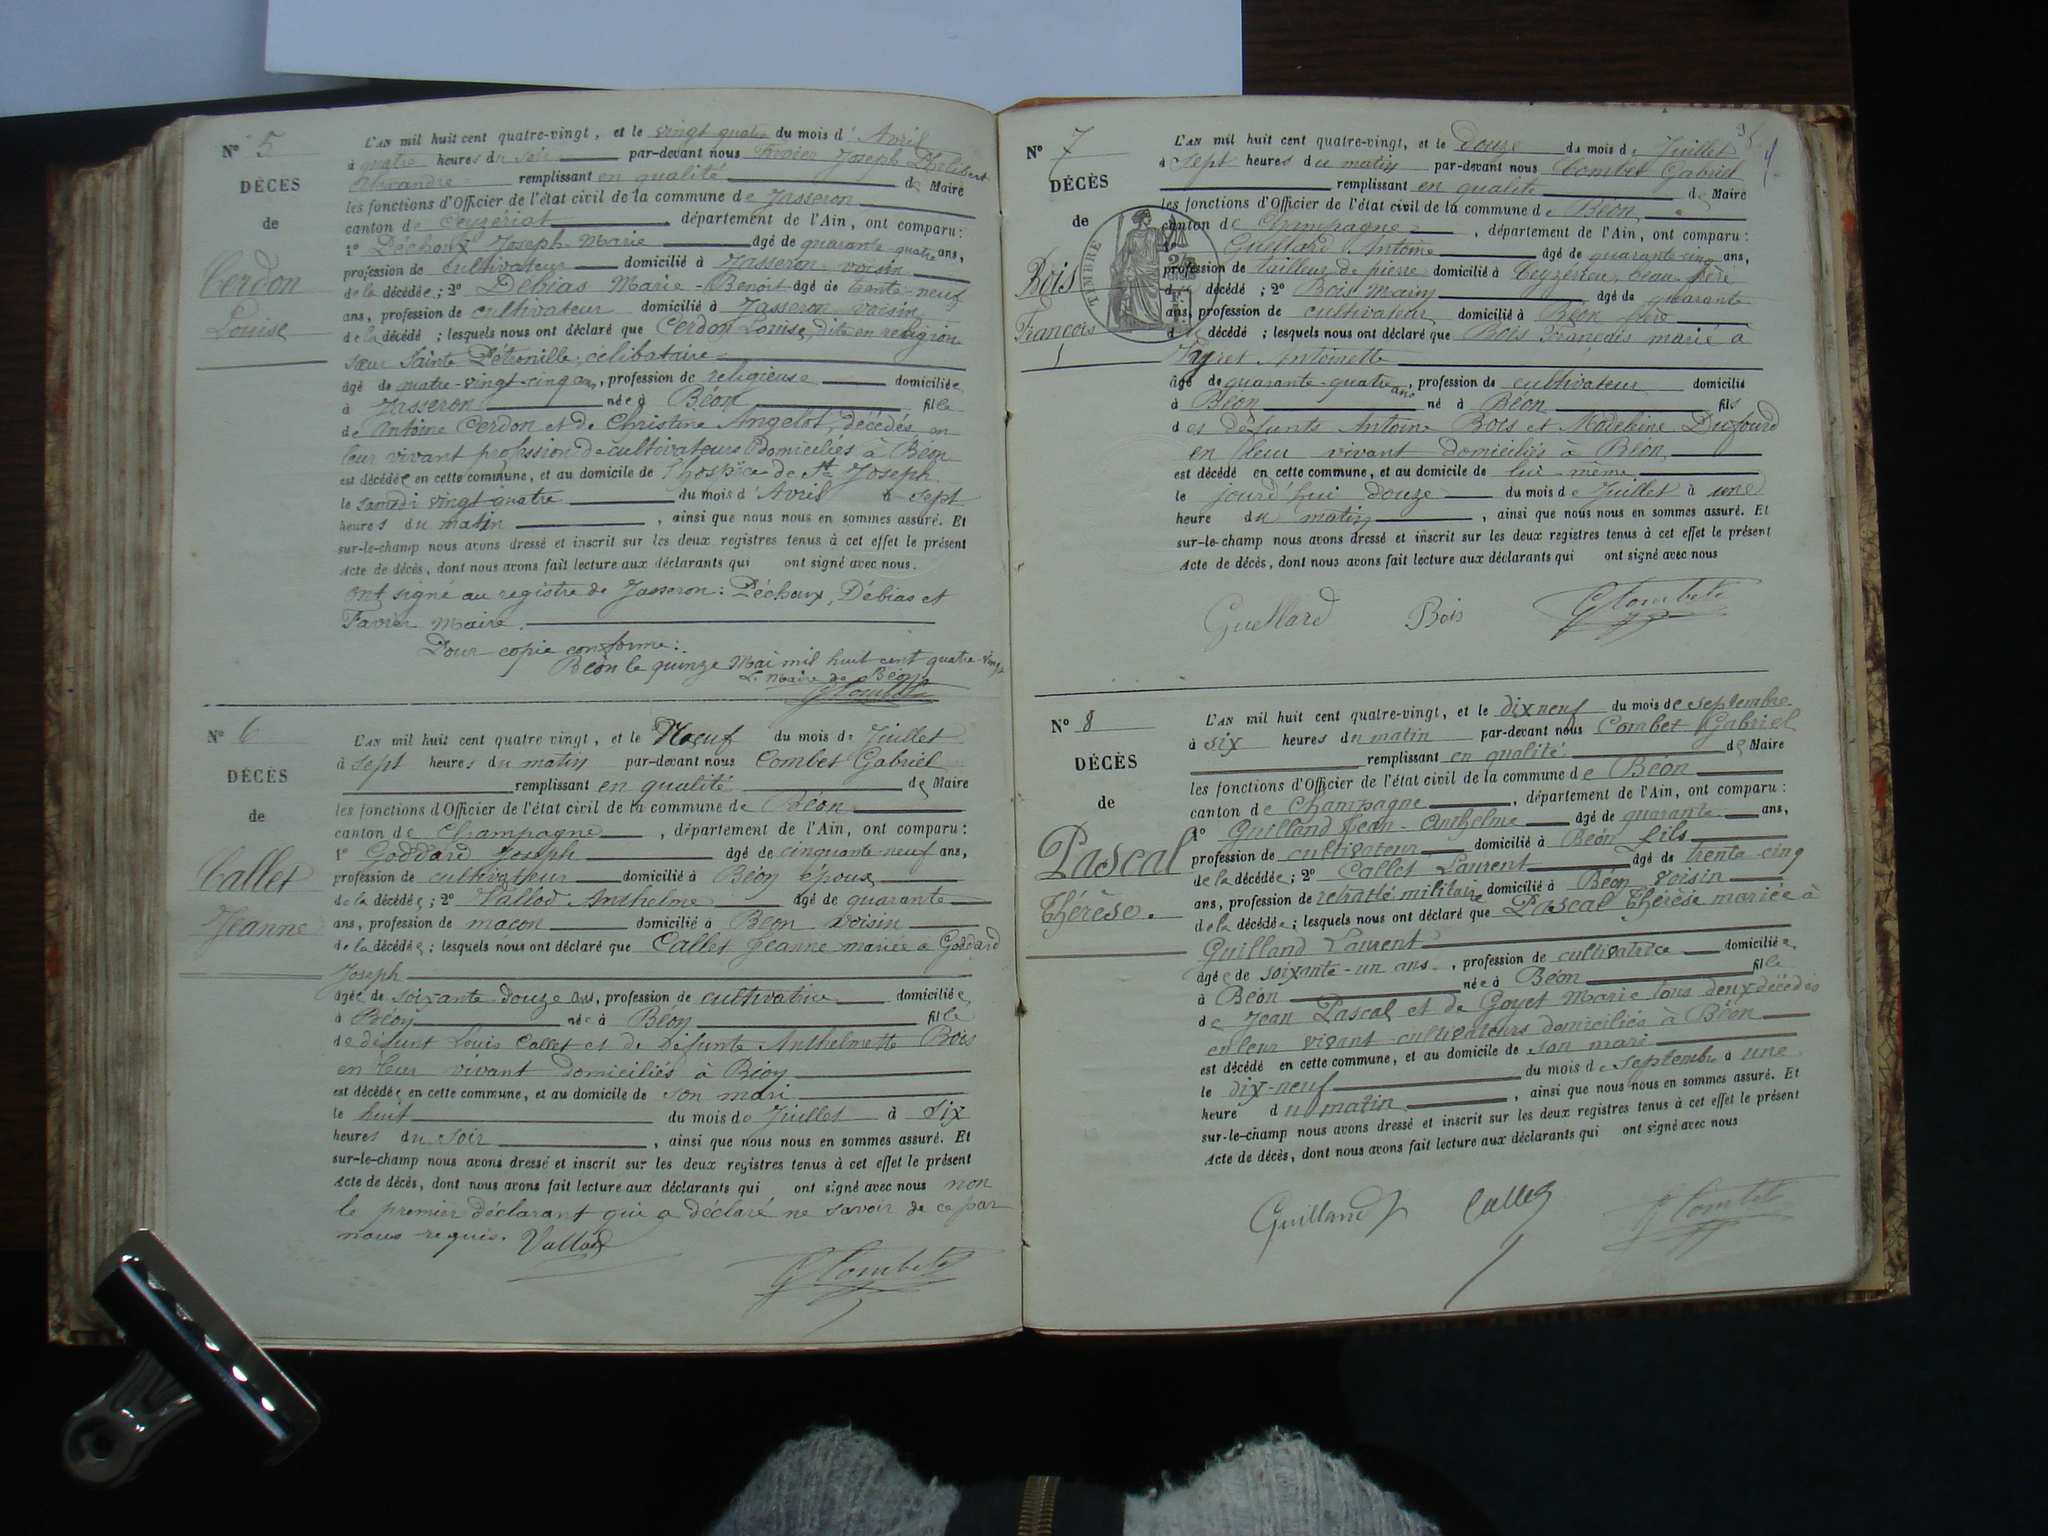 N° 5
DÉCÈS
de
Cerdon
Louise
L'AN mil huit cent quatre-vingt, et le vingt quatre du mois d'Avril
à quatre heures du soir par-devant nous Favier Joseph
remplissant en qualité de Maire
les fonctions d'Officier de l'état civil de la commune de Jasseron
canton de Ceyzériat, département de l'Ain, ont comparu:
1° Péchoux Joseph-Marie âgé de quarante-quatre ans,
profession de cultivateur domicilié à Jasseron voisin
de la décédée; 2° Debias Marie-Benoit âgé de trente-neuf
ans, profession de cultivateur domicilié à Jasseron voisin
de la décédé; lesquels nous ont déclaré que Cerdon Louise, dite en religion
sœur Sainte Pétronille, célibataire
âgé de quatre-vingt-cinq ans, profession de religieuse domiciliée
à Jasseron née à Béon fille
de Antoine Cerdon et de Christine Angelot, décédés en
leur vivant profession de cultivateurs domiciliés à Béon
est décédée en cette commune, et au domicile de l'hospice de St Joseph
le samedi vingt quatre du mois d'Avril à sept
heures du matin, ainsi que nous nous en sommes assuré. Et
sur-le-champ nous avons dressé et inscrit sur les deux registres tenus à cet effet le présent
Acte de décès, dont nous avons fait lecture aux déclarants qui ont signé avec nous.
ont signé au registre de Jasseron: Péchoux, Débias et
Favier Maire.
Pour copie conforme:
Béon le quinze Mai mil huit cent quatre-vingt
Le Maire de Béon
GCombet
N° 6
DÉCÈS
de
Callet
Jeanne
L'AN mil huit cent quatre vingt, et le Neuf du mois de Juillet
à sept heures du matin par-devant nous Combet Gabriel
remplissant en qualité de Maire
les fonctions d'Officier de l'état civil de la commune de Béon
canton de Champagne, département de l'Ain, ont comparu:
1° Goddard Joseph âgé de cinquante-neuf ans,
profession de cultivateur domicilié à Béon époux
de la décédée; 2° Vallod Anthelme âgé de quarante
ans, profession de maçon domicilié à Béon voisin
de la décédée; lesquels nous ont déclaré que Callet Jeanne mariée à Goddard
Joseph
âgée de soixante douze ans, profession de cultivatrice domiciliée
à Béon née à Béon fille
de défunt Louis Callet et de Défunte Anthelmette Bois
en leur vivant domiciliés à Béon
est décédée en cette commune, et au domicile de son mari
le huit du mois de Juillet à six
heures du soir, ainsi que nous nous en sommes assuré. Et
sur-le-champ nous avons dressé et inscrit sur les deux registres tenus à cet effet le présent
Acte de décès, dont nous avons fait lecture aux déclarants qui ont signé avec nous non
le premier déclarant qui a déclaré ne savoir de ce par
nous requis. Vallod
GCombet
N° 7
DÉCÈS
de
Bois
François
TIMBRE
L'AN mil huit cent quatre-vingt, et le Douze du mois de Juillet
à sept heures du matin par-devant nous Combet Gabriel
remplissant en qualité de Maire
les fonctions d'Officier de l'état civil de la commune de Béon
canton de Champagne, département de l'Ain, ont comparu:
1° Guellard Antoine âgé de quarante-cinq ans,
profession de tailleur de pierre domicilié à Ceyzérieu, beau-frère
du décédé; 2° Bois âgé de quarante
ans, profession de cultivateur domicilié à Béon
décédé; lesquels nous ont déclaré que Bois François marié à
Antoinette
âgé de quarante-quatre ans, profession de cultivateur domicilié
à Béon né à Béon fils
des défunts Antoine Bois et Madeleine Dufourd
en leur vivant domiciliés à Béon
est décédé en cette commune, et au domicile de lui-même
le jourd'hui douze du mois de Juillet à une
heure du matin, ainsi que nous nous en sommes assuré. Et
sur-le-champ nous avons dressé et inscrit sur les deux registres tenus à cet effet le présent
Acte de décès, dont nous avons fait lecture aux déclarants qui ont signé avec nous
Guellard Bois GCombet
N° 8
DÉCÈS
de
Pascal
Thérèse.
L'AN mil huit cent quatre-vingt, et le dix neuf du mois de septembre
à six heures du matin par-devant nous Combet Gabriel
remplissant en qualité de Maire
les fonctions d'Officier de l'état civil de la commune de Béon
canton de Champagne, département de l'Ain, ont comparu:
1° Guilland Jean-Anthelme âgé de quarante ans,
profession de cultivateur domicilié à Béon fils
de la décédée; 2° Callet Laurent âgé de trente-cinq
ans, profession de retraité militaire domicilié à Béon voisin
de la décédée; lesquels nous ont déclaré que Pascal Thérèse mariée à
Guilland Laurent
âgée de soixante-un ans, profession de cultivatrice domiciliée
à Béon née à Béon fille
de Jean Pascal et de Goyet Marie tous deux décédés
en leur vivant cultivateurs domiciliés à Béon
est décédé en cette commune, et au domicile de son mari
le dix-neuf du mois de septembre à une
heure du matin, ainsi que nous nous en sommes assuré. Et
sur-le-champ nous avons dressé et inscrit sur les deux registres tenus à cet effet le présent
Acte de décès, dont nous avons fait lecture aux déclarants qui ont signé avec nous
Guilland J Callet GCombet